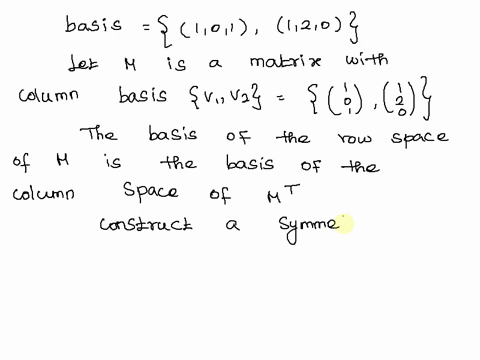 basis = { (1,0,1), (1,2,0) }
Let M is a matrix with
column basis {V1, V2} = { (1 0 1), (1 2 0) }
The basis of the row space
of M is the basis of the
column space of M^T
construct a symme